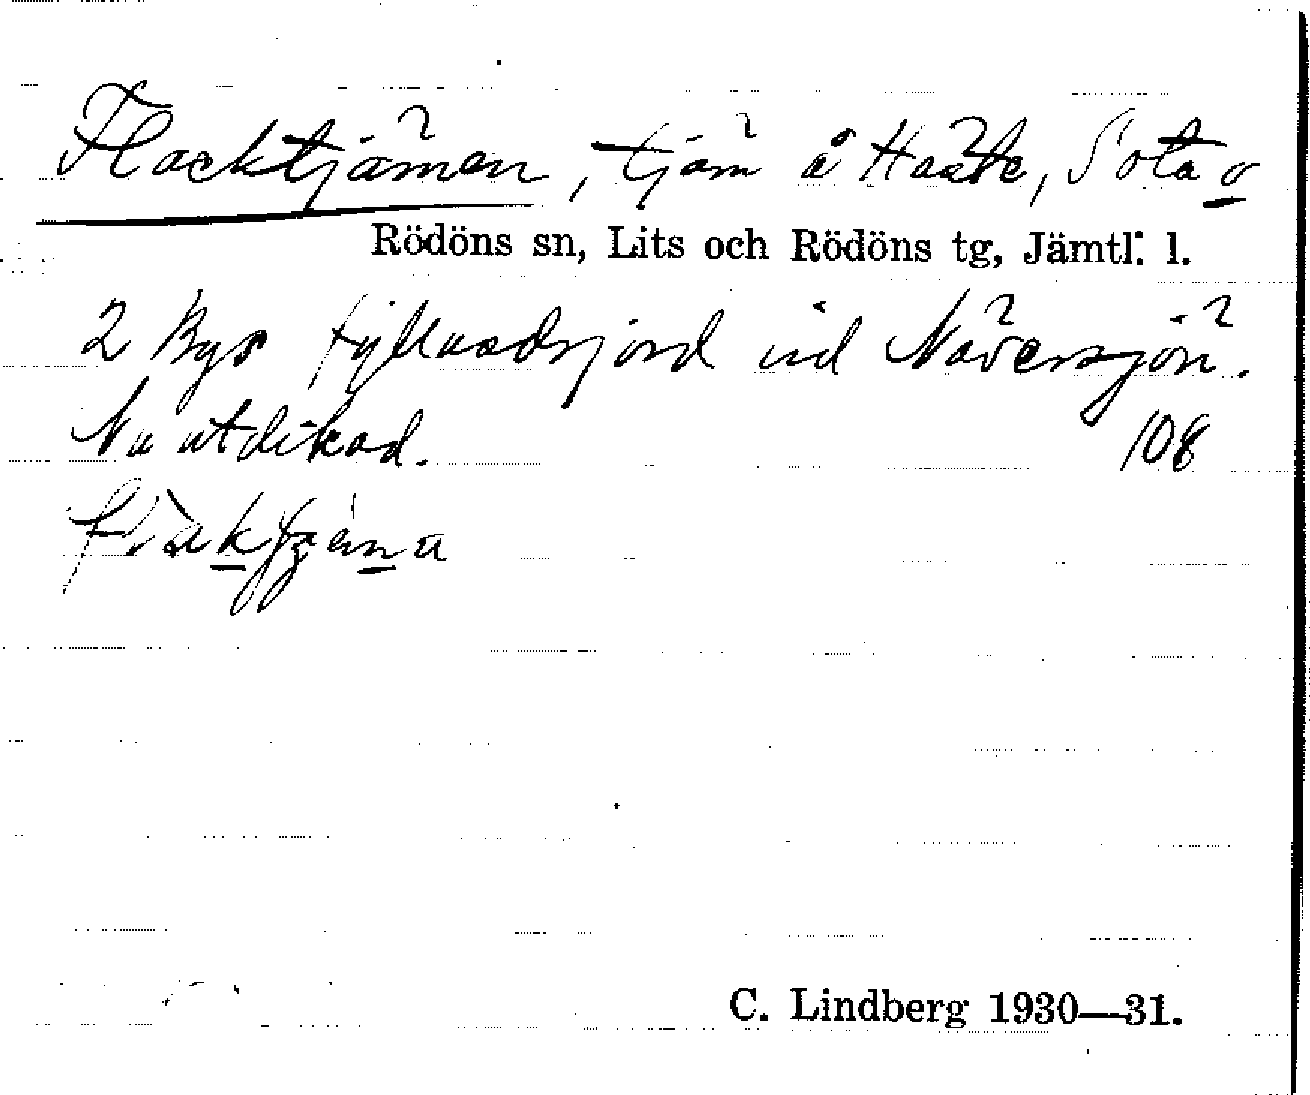 Flacktjärnen, tjärn å Haste, Sota o
Rödöns sn, Lits och Rödöns tg, Jämtl. l.
2 Bys fyllnadsjord vid Näversjön.
Nu utdikad. 108
C. Lindberg 1930—31.